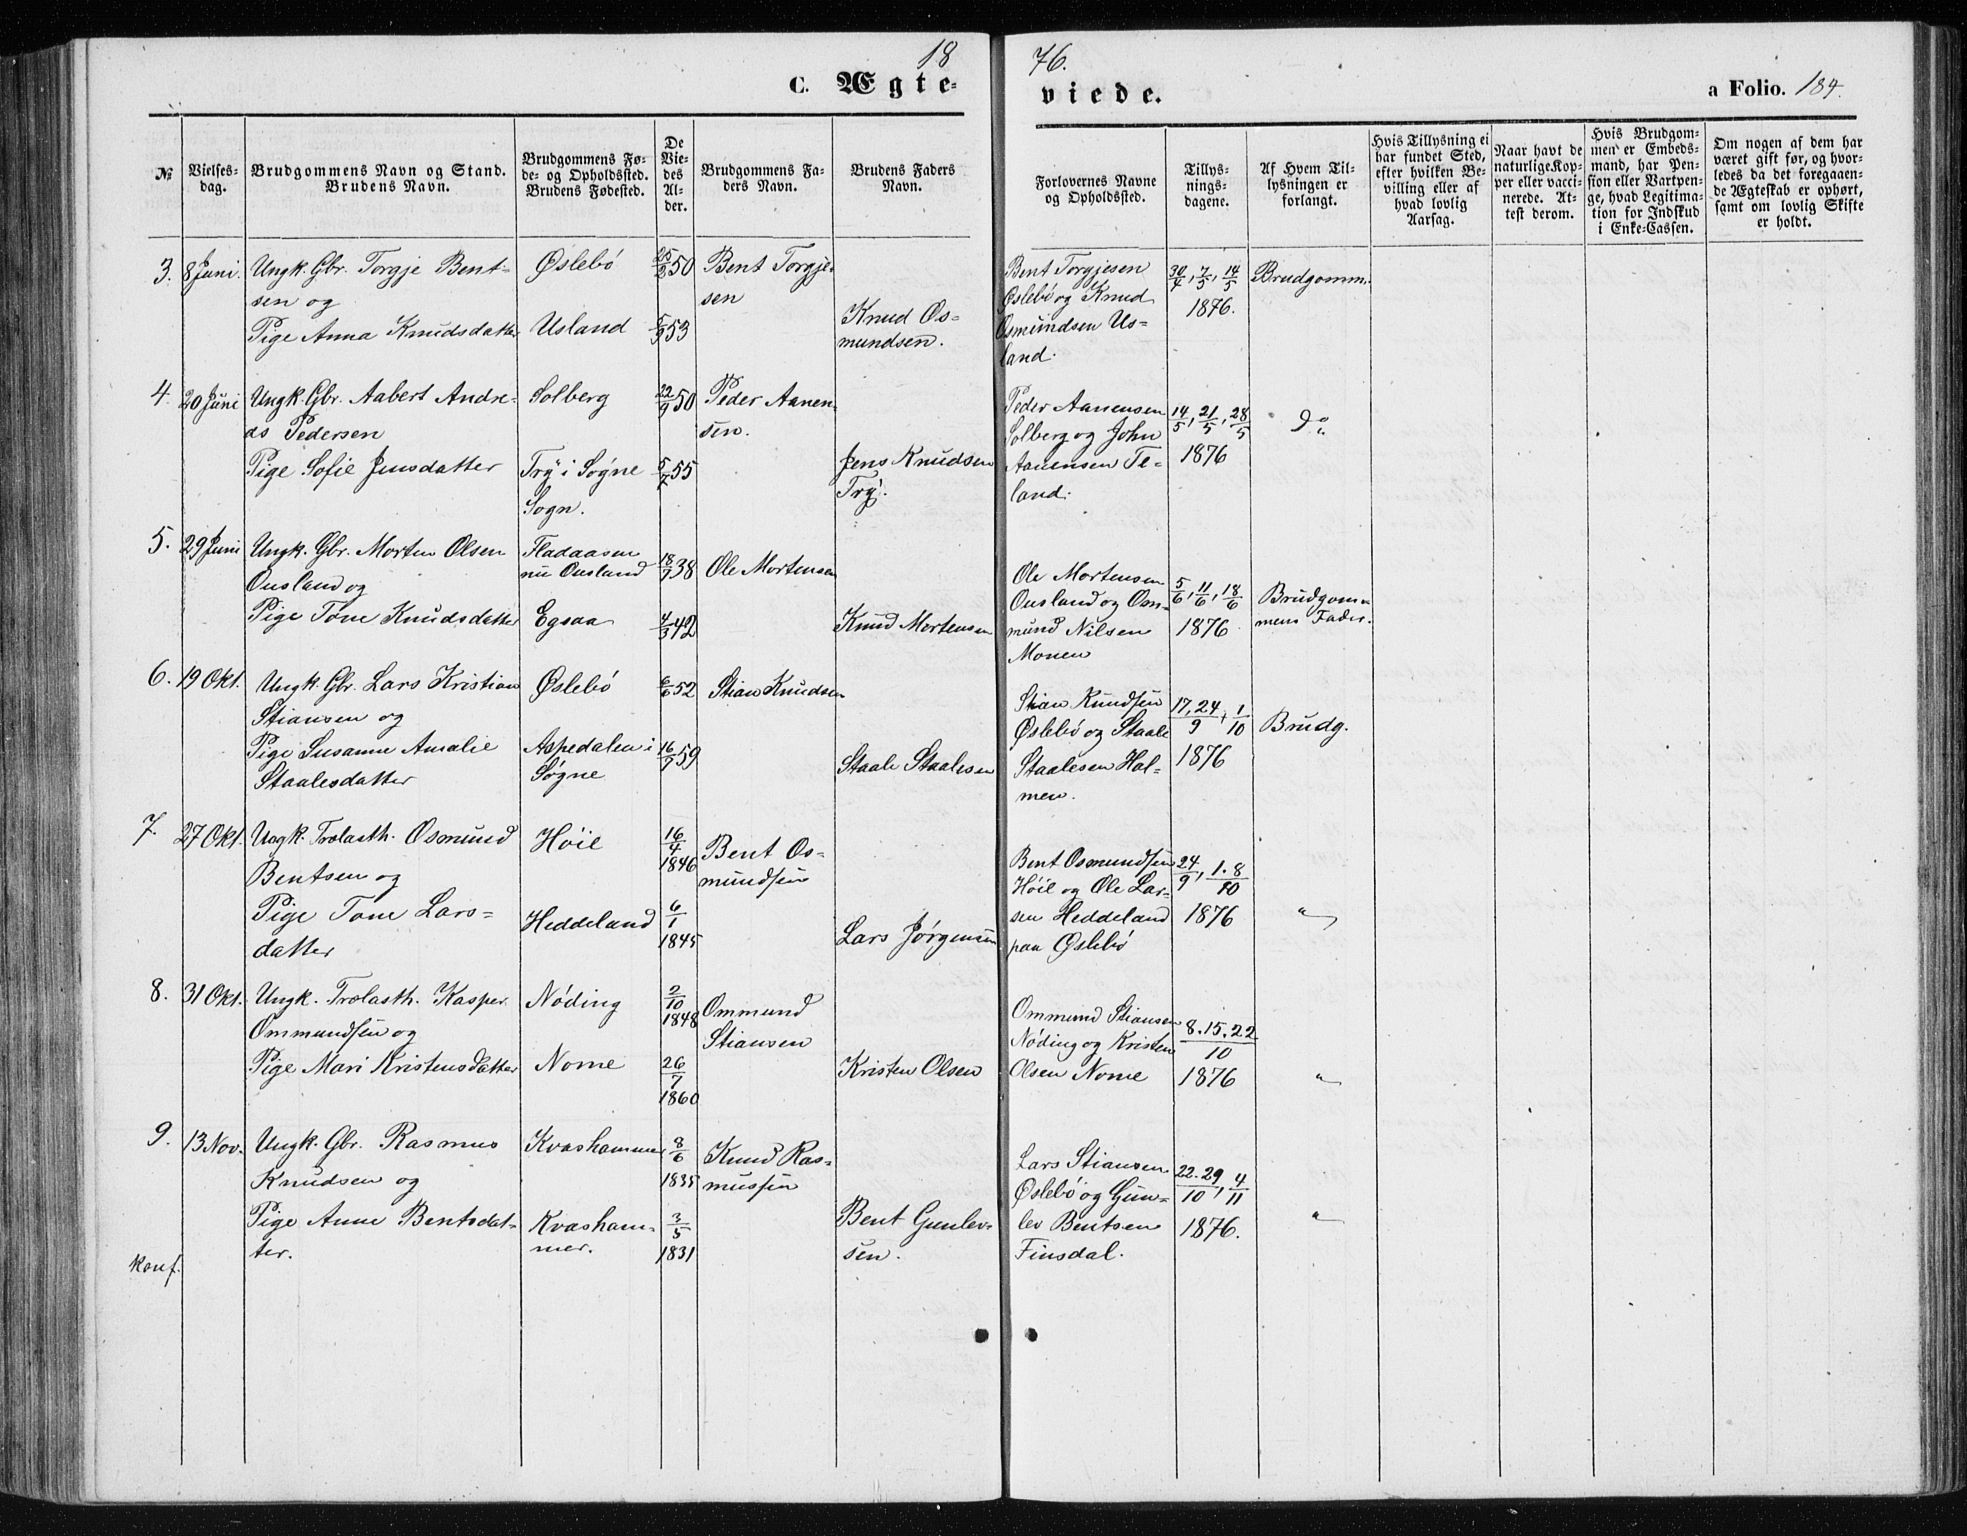 18
76.
C. Ægte-
viede.
a Folio. 184.
No
Vielses-
dag.
Brudgommens Navn og Stand.
Brudens Navn.
Brudgommens Fø-
de- og Opholdssted.
Brudens Fødested.
De
Vie-
des
Al-
der.
Brudgommens Fa-
ders Navn.
Brudens Faders
Navn.
Forlovernes Navne
og Opholdssted.
Tillys-
nings-
dagene.
Af Hvem Til-
lysningen er
forlangt.
Hvis Tillysning ei
har fundet Sted,
efter hvilken Be-
villing eller af
hvad lovlig
Aarsag.
Naar havt de
naturlige Kop-
per eller vacci-
nerede. At-
test derom.
Hvis Brudgom-
men er Embeds-
mand, har Pen-
sion eller Vartpen-
ge, hvad Legitima-
tion for Indskud
i Enke-Cassen.
Om nogen af dem har
været gift før, og hvor-
ledes da det foregaaen-
de Ægteskab er ophørt,
samt om lovlig Skifte
er holdt.
3. 8 Juni. Ungk. Gbr. Torgje Bent-
sen og
Pige Anna Knudsdatter
Øslebö
Usland
25/2 50
5/9 53
Bent Torgje-
sen
Knud Os-
mundsen.
Bent Torgjesen
Øslebö og Knud
Osmundsen Us-
land.
30/4, 7/5, 14/5
1876.
Brudgomm.
4. 20 Juni Ungk. Gbr. Aabert Andre-
as Pedersen
Pige Sofie Jensdatter
Solberg
Try i Sögne
Sogn.
22/9 50
5/7 55
Peder Aanen-
sen.
Jens Knudsen
Try.
Peder Aanensen
Solberg og John
Aanensen Te-
land.
14/5, 21/5, 28/5
1876
Do
5. 29 Juni Ungk. Gbr. Morten Olsen
Ousland og
Pige Tone Knudsdatter
Fladaasen
nu Ousland
Egsaa
18/9 38
4/3 42
Ole Mortensen
Knud Mortensen
Ole Mortensen
Ousland og Om-
mund Nilsen
Monen
5/6, 11/6, 18/6
1876
Brudgom-
mens Fader.
6. 19 Okt. Ungk. Gbr. Lars Kristian
Stiansen og
Pige Susanne Amalie
Staalesdatter
Øslebö
Aspedalen i
Sögne
6/6 52
16/7 59
Stian Knudsen
Staale Staalesen
Stian Knudsen
Øslebö og Staale
Staalesen Hol-
men.
17, 24/9, 1/10
1876
Brudg.
7. 27 Okt. Ungk. Trælasth. Osmund
Bentsen og
Pige Tone Lars-
datter
Höie
Heddeland
16/4
1846
6/1
1845
Bent Os-
mundsen
Lars Jørgensen
Bent Osmundsen
Höie og Ole Lar-
sen Heddeland
paa Øslebö
24/9, 1.8/10
1876
"
8. 31 Okt. Ungk. Trælasth. Kasper
Ommundsen og
Pige Mari Kristensdatter
Nöding
Nome
2/10
1848
26/7
1860
Ommund
Stiansen
Kristen Olsen
Ommund Stiansen
Nöding og Kristen
Olsen Nome
8.15.22/10
1876
"
9. 13 Nov. Ungk. Gbr. Rasmus
Knudsen og
Pige Anne Bentsdat-
ter.
konf.
Kvashammer
Kvasham-
mer.
8/6
1835
3/5
1831
Knud Ras-
mussen
Bent Gunlev-
sen.
Lars Stiansen
Øslebö og Gun-
lev Bentsen
Finsdal.
22.29/10, 4/11
1876.
"